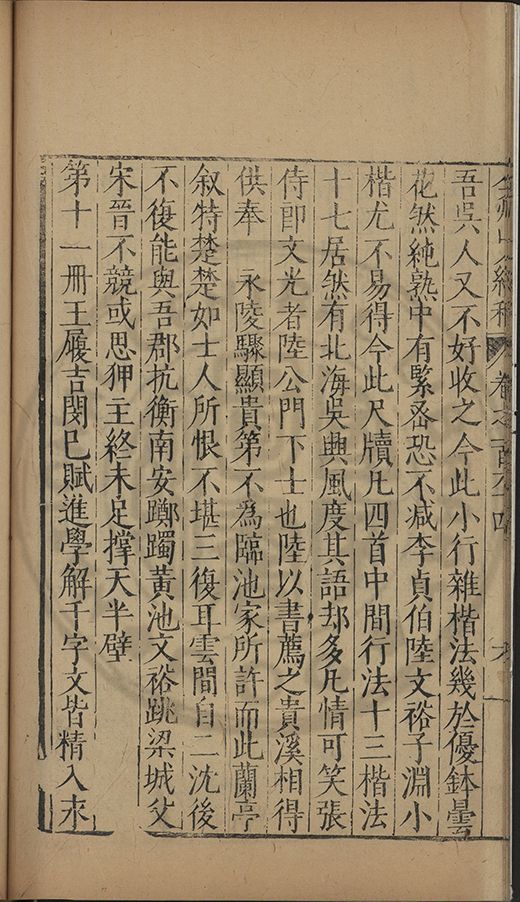 弇州山人續稿 卷之一百六十四
吾吳人又不好收之今此小行雜楷法幾於優鉢曇
花然純熟中有緊密恐不减李貞伯陸文裕子淵小
楷尤不易得今此尺牘凡四首中間行法十三楷法
十七居然有北海吳興風度其語却多凡情可笑張
侍郎文光者陸公門下士也陸以書薦之貴溪相得
供奉 永陵驟顯貴第不為臨池家所許而此蘭亭
叙特楚楚如士人所恨不堪三復耳雲間自二沈後
不復能與吾郡抗衡南安躑躅黃池文裕跳梁城父
宋晉不競或思狎主終未足撑天半壁
第十一冊王履吉閔巳賦進學解千字文皆精入未